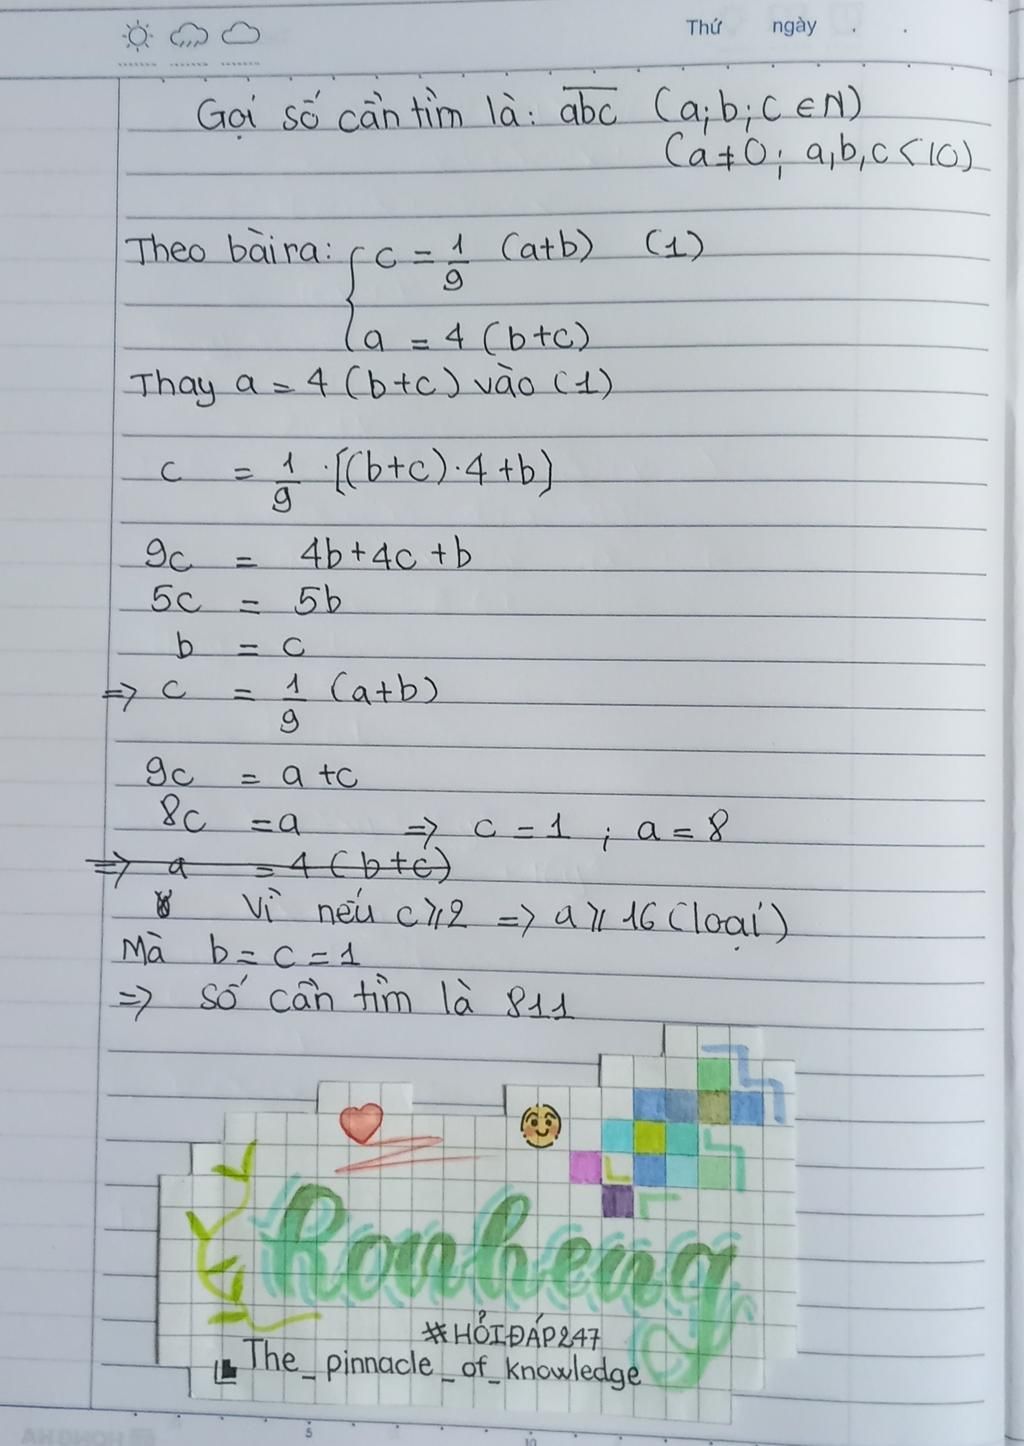 Thứ ngày . .
Gọi số cần tìm là: abc (a;b;c ∈ N)
(a≠0; a,b,c<10)
Theo bài ra: { c = 1/9 (a+b) (1)
a = 4 (b+c)
Thay a = 4 (b+c) vào (1)
c = 1/9 · [(b+c)·4+b]
9c = 4b+4c+b
5c = 5b
b = c
=> c = 1/9 (a+b)
9c = a+c
8c = a => c = 1 ; a = 8
=> a = 4 (b+c)
Vì nếu c⩾2 => a⩾16 (loại)
Mà b=c=1
=> số cần tìm là 811
Ronheng
#HỎIĐÁP247
The_pinnacle_of_knowledge
5
10